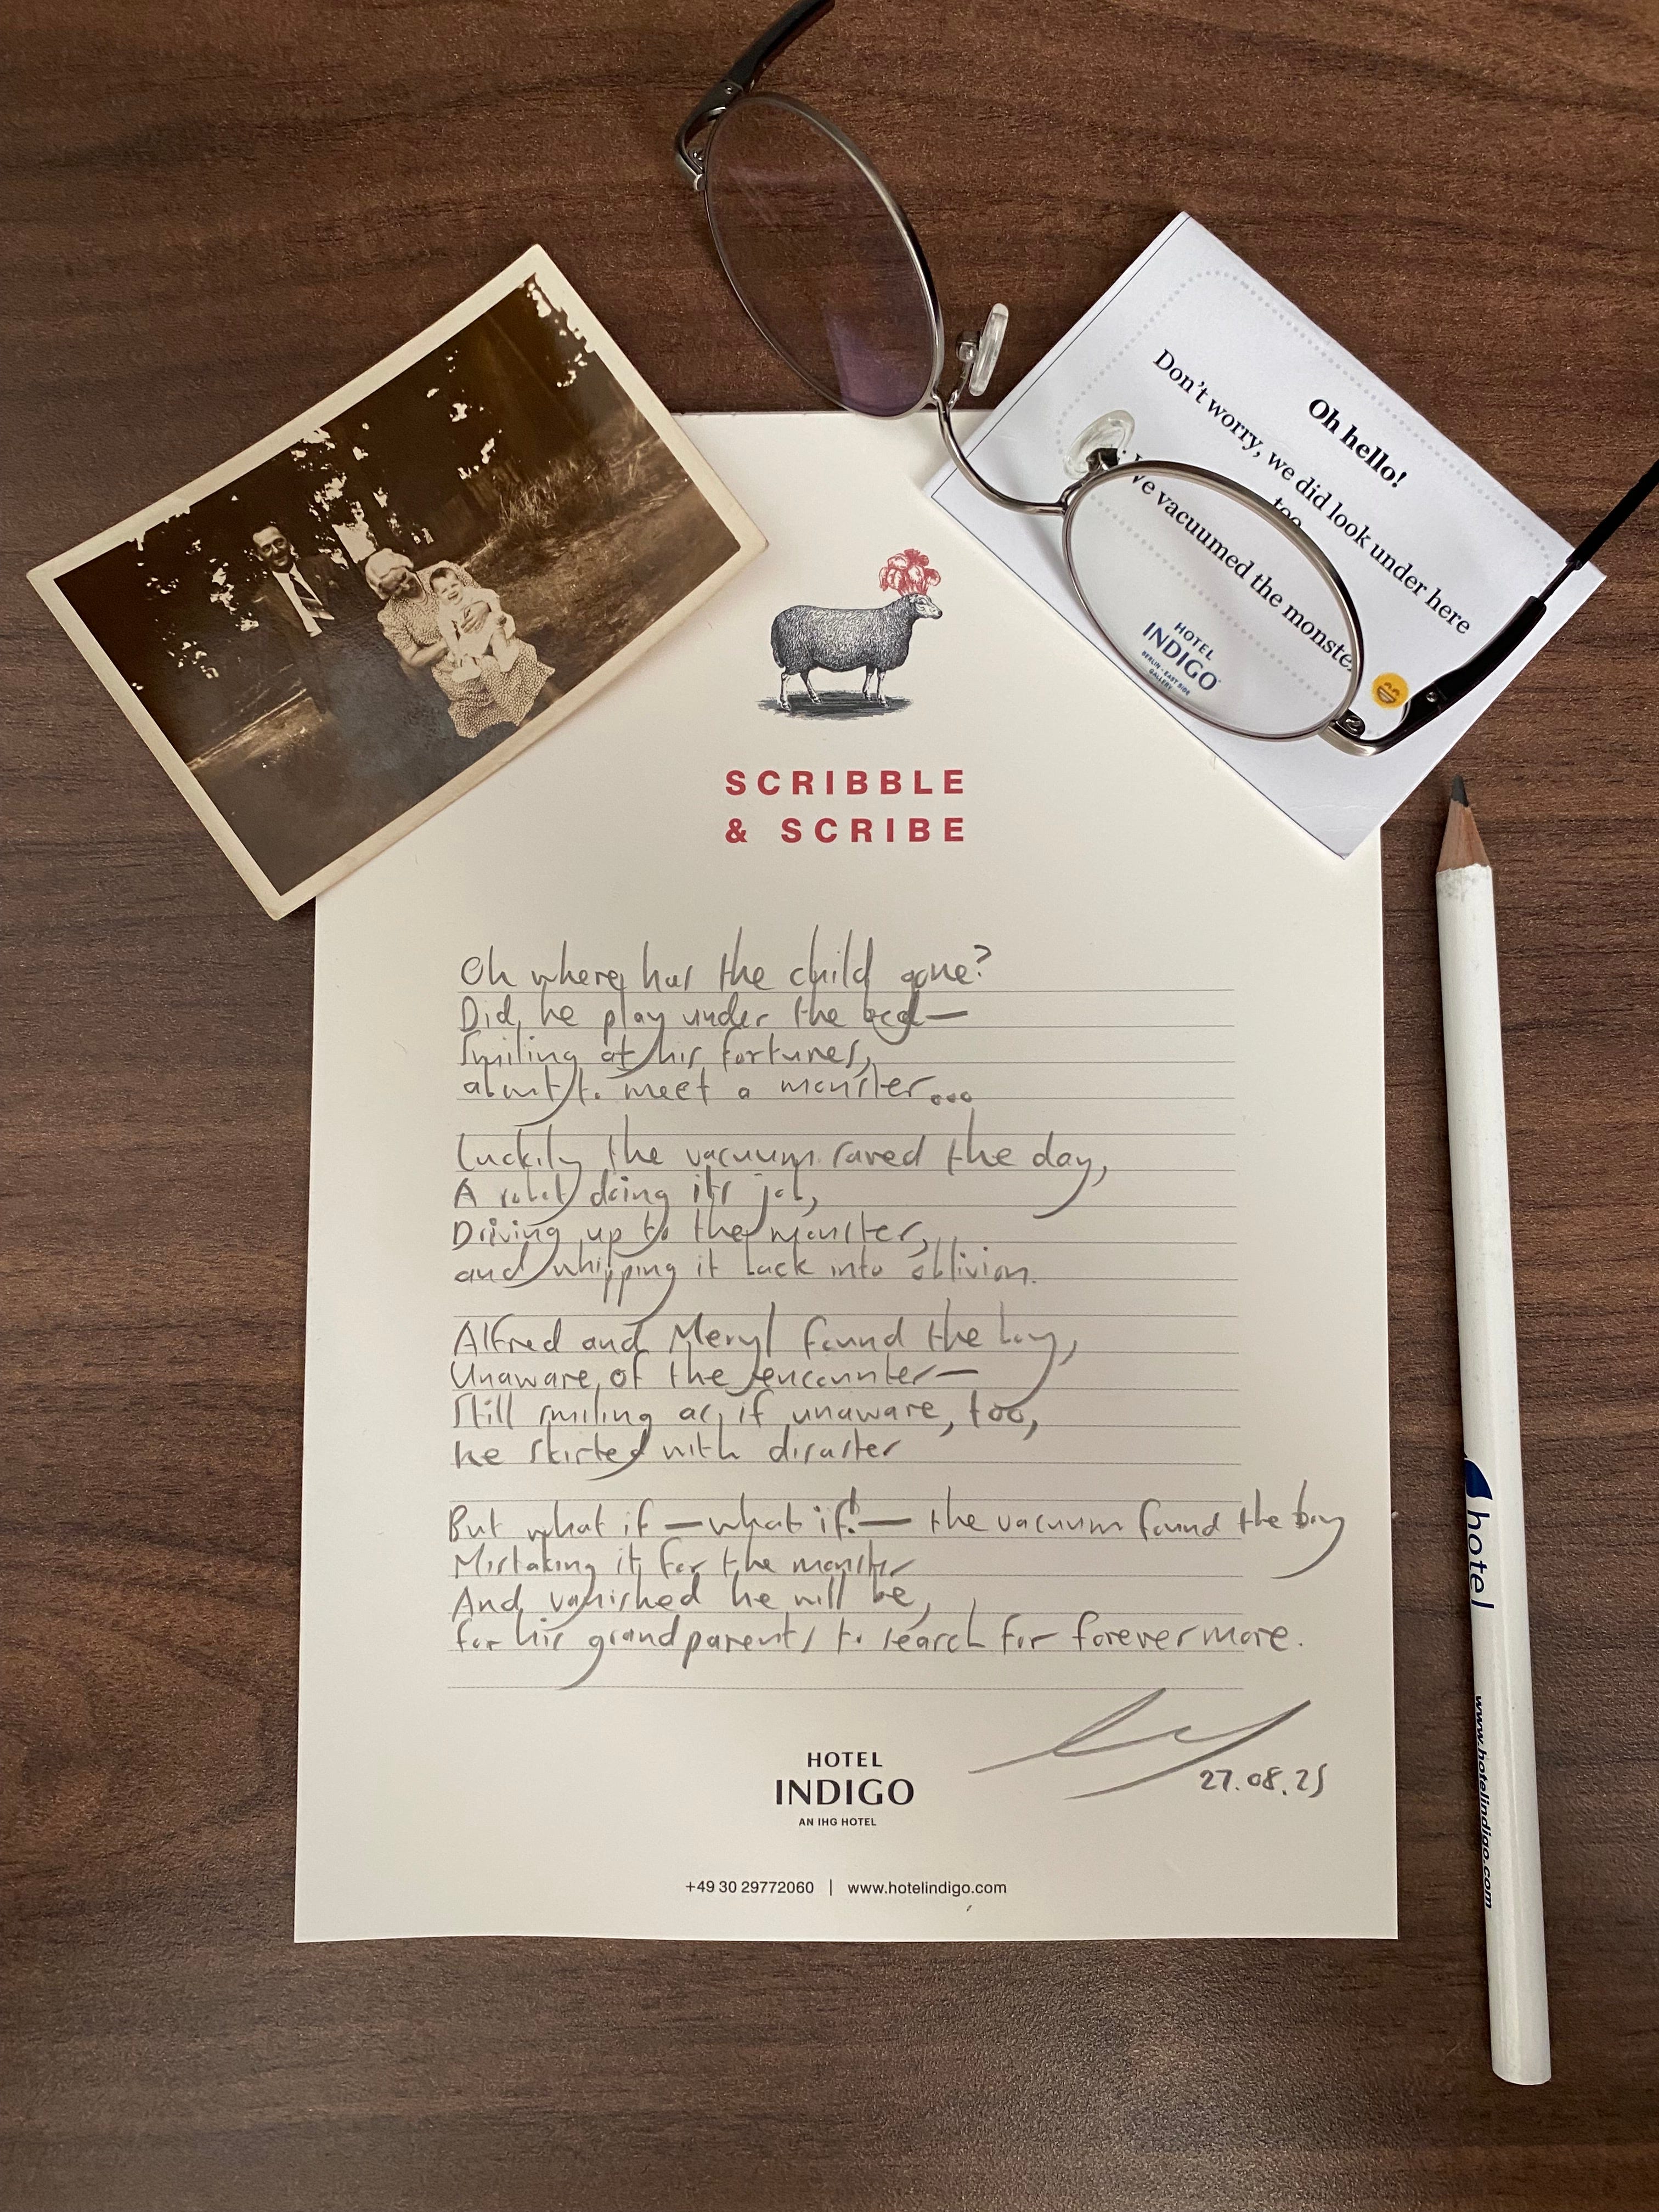 Oh hello!
Don't worry, we did look under here
too
ve vacuumed the monste
HOTEL
INDIGO
BERLIN - EAST SIDE
GALLERY
SCRIBBLE
& SCRIBE
Oh where has the child gone?
Did he play under the bed—
Smiling at his fortunes,
about to meet a monster...
Luckily the vacuum saved the day,
A robot doing its job,
Driving up to the monster,
and whipping it back into oblivion.
Alfred and Meryl found the boy,
Unaware of the encounter—
Still smiling as if unaware, too,
he skirted with disaster
But what if—what if!—the vacuum found the boy
Mistaking it for the monster
And vanished he will be,
for his grandparents to search for forevermore.
27.08.25
HOTEL
INDIGO
AN IHG HOTEL
+49 30 29772060 | www.hotelindigo.com
hotel
www.hotelindigo.com